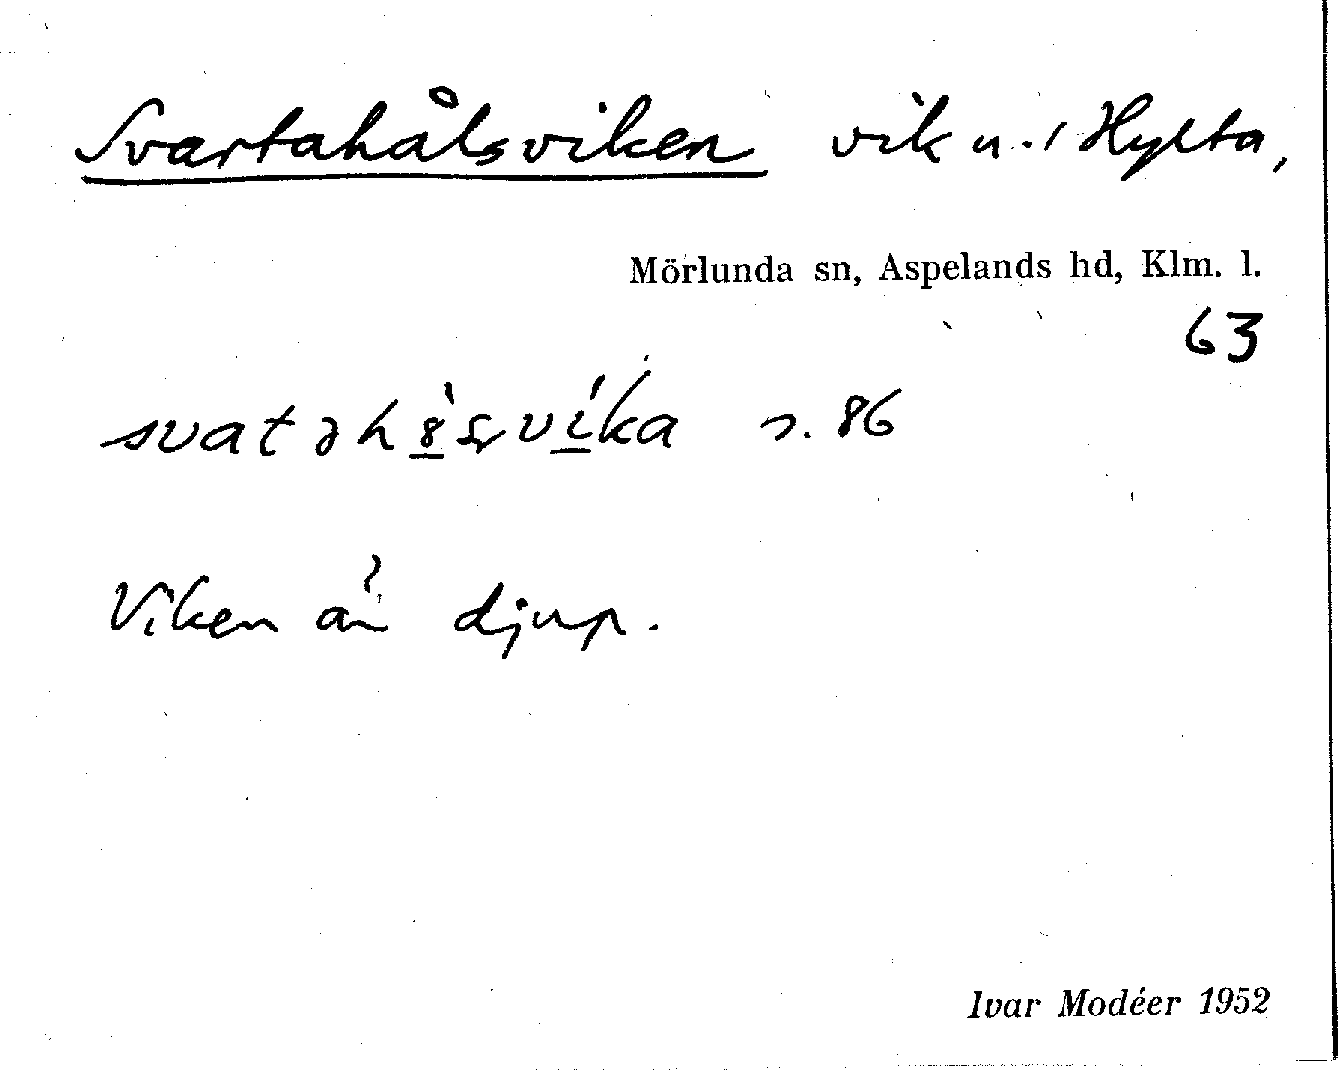 Svartahålsviken vik u. / Hylta,
Mörlunda sn, Aspelands hd, Klm. l.
63
s. 86
Viken är djup.
Ivar Modéer 1952